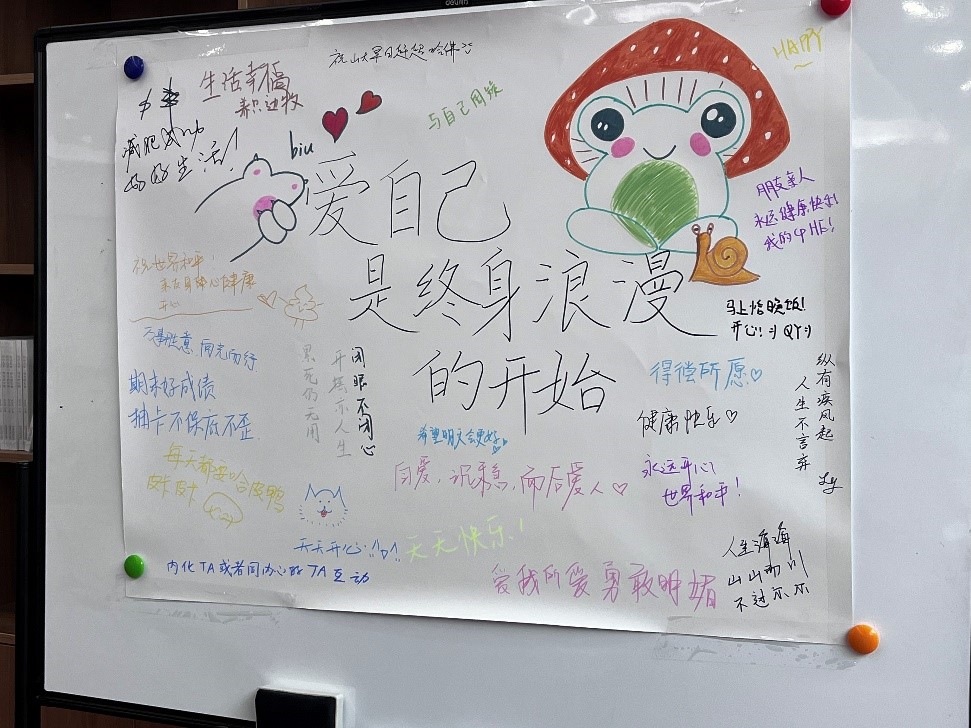 deli
生活幸福
HAPPY
与自己同频
减肥成功
好好生活!
biu
爱自己
是终身浪漫
的开始
朋友亲人
永远健康快乐!
我的
祝世界和平
开心
马上恰晚饭!
开心! :) QY :)
万事胜意,向光而行
期末好成绩
抽卡不保底不歪
累死仍无用
开摆亦人生
闭眼不闭心
得偿所愿♡
健康快乐♡
纵有疾风起
人生不言弃
Ly
希望明天会更好
自爱,沉稳,而后爱人♡
永远开心
世界和平!
每天都要哈皮鸭
天天开心
天天快乐!
内化TA或者同内心的TA互动
爱我所爱 勇敢明媚
人生海海
山山而川
不过尔尔